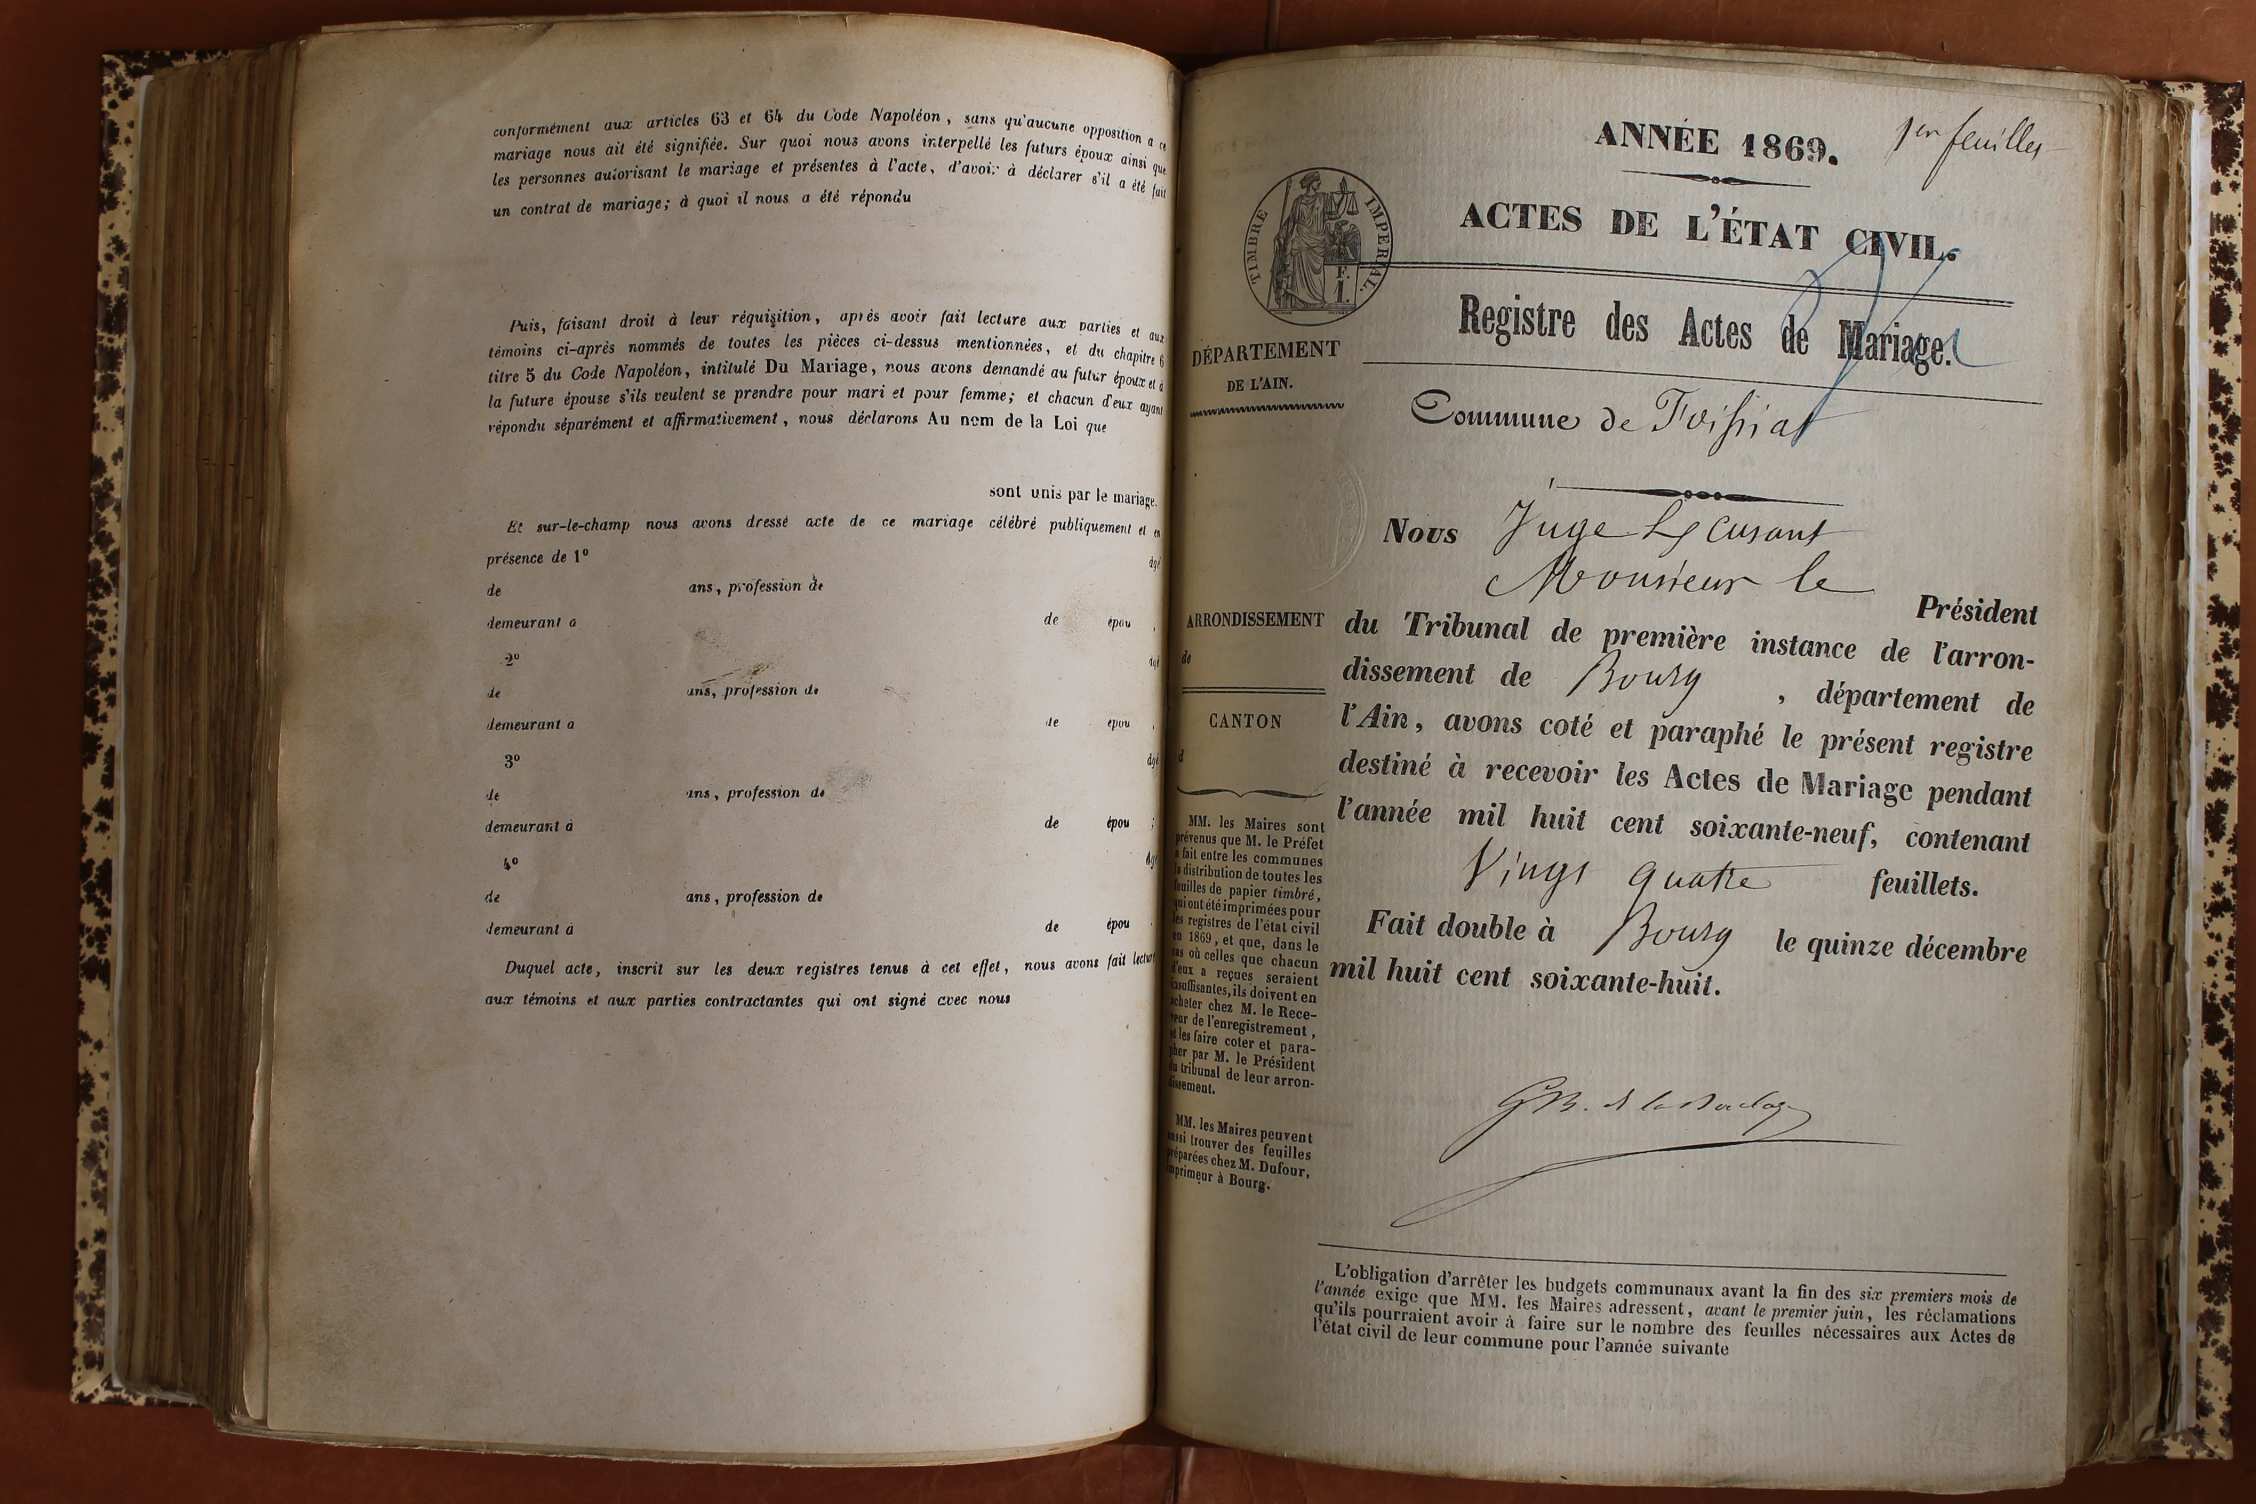 conformément aux articles 63 et 64 du Code Napoléon, sans qu'aucune opposition a ce
mariage nous ait été signifiée. Sur quoi nous avons interpellé les futurs époux ainsi que
les personnes autorisant le mariage et présentes à l'acte, d'avoir à déclarer s'il a été fait
un contrat de mariage; à quoi il nous a été répondu
Puis, faisant droit à leur réquisition, après avoir fait lecture aux parties et aux
témoins ci-après nommés de toutes les pièces ci-dessus mentionnées, et du chapitre 6
titre 5 du Code Napoléon, intitulé Du Mariage, nous avons demandé au futur époux et à
la future épouse s'ils veulent se prendre pour mari et pour femme; et chacun d'eux ayant
répondu séparément et affirmativement, nous déclarons Au nom de la Loi que
sont unis par le mariage.
Et sur-le-champ nous avons dressé acte de ce mariage célébré publiquement et en
présence de 1º âgé
de ans, profession de
demeurant à de épou ,
2º âgé
de ans, profession de
demeurant à de épou ,
3º âgé
de ans, profession de
demeurant à de épou ;
4º âgé
de ans, profession de
demeurant à de épou .
Duquel acte, inscrit sur les deux registres tenus à cet effet, nous avons fait lecture
aux témoins et aux parties contractantes qui ont signé avec nous
ANNÉE 1869.
feuillet
ACTES DE L'ÉTAT CIVIL.
TIMBRE IMPERIAL.
Registre des Actes de Mariage.
DÉPARTEMENT
DE L'AIN.
Commune de Foissiat
Nous Juge
Monsieur le Président
du Tribunal de première instance de l'arron-
dissement de Bourg , département de
l'Ain, avons coté et paraphé le présent registre
destiné à recevoir les Actes de Mariage pendant
l'année mil huit cent soixante-neuf, contenant
Vingt quatre feuillets.
Fait double à Bourg le quinze décembre
mil huit cent soixante-huit.
ARRONDISSEMENT
de
CANTON
d
MM. les Maires sont
prévenus que M. le Préfet
a fait entre les communes
la distribution de toutes les
feuilles de papier timbré,
qui ont été imprimées pour
les registres de l'état civil
en 1869, et que, dans le
cas où celles que chacun
d'eux a reçues seraient
insuffisantes, ils doivent en
acheter chez M. le Rece-
veur de l'enregistrement,
et les faire coter et para-
pher par M. le Président
du tribunal de leur arron-
dissement.
MM. les Maires peuvent
aussi trouver des feuilles
préparées chez M. Dufour,
imprimeur à Bourg.
L'obligation d'arrêter les budgets communaux avant la fin des six premiers mois de
l'année exige que MM. les Maires adressent, avant le premier juin, les réclamations
qu'ils pourraient avoir à faire sur le nombre des feuilles nécessaires aux Actes de
l'état civil de leur commune pour l'année suivante